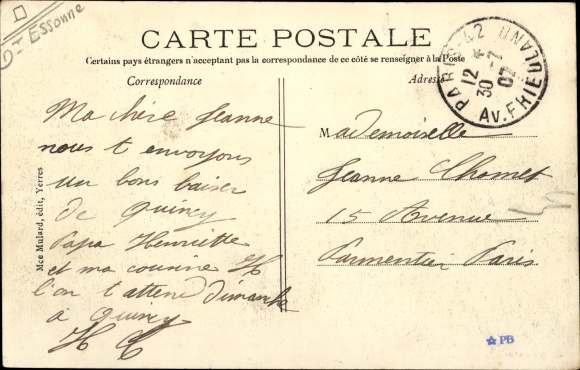 Dt Essonne
CARTE POSTALE
Certains pays étrangers n'acceptant pas la correspondance de ce côté se renseigner à la Poste
Correspondance
Adresse
PARIS 42
12 *
30 -7
07
AV. FRIEDLAND
Ma chère Jeanne
nous t envoyons
un bons baiser
de Quincy
Papa Henriette
et ma cousine H
l'on t'attend dimanche
à Quincy
H C
Mademoiselle
Jeanne Chomet
15 Avenue
Parmentier Paris
Mce Mulard, édit, Yerres
PB